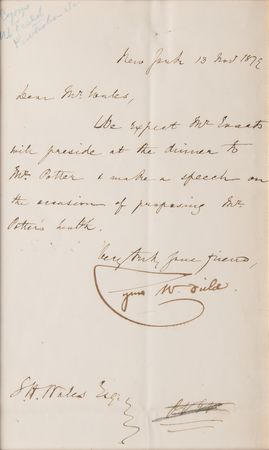 New York 13 Nov 1879
Dear Mr Wales,
We expect Mr Evarts
will preside at the dinner to
Mr Potter & make a speech on
the occasion of proposing Mr
Potter's health.
Very truly your friend,
Cyrus W. Field.
S. H. Wales Esq.